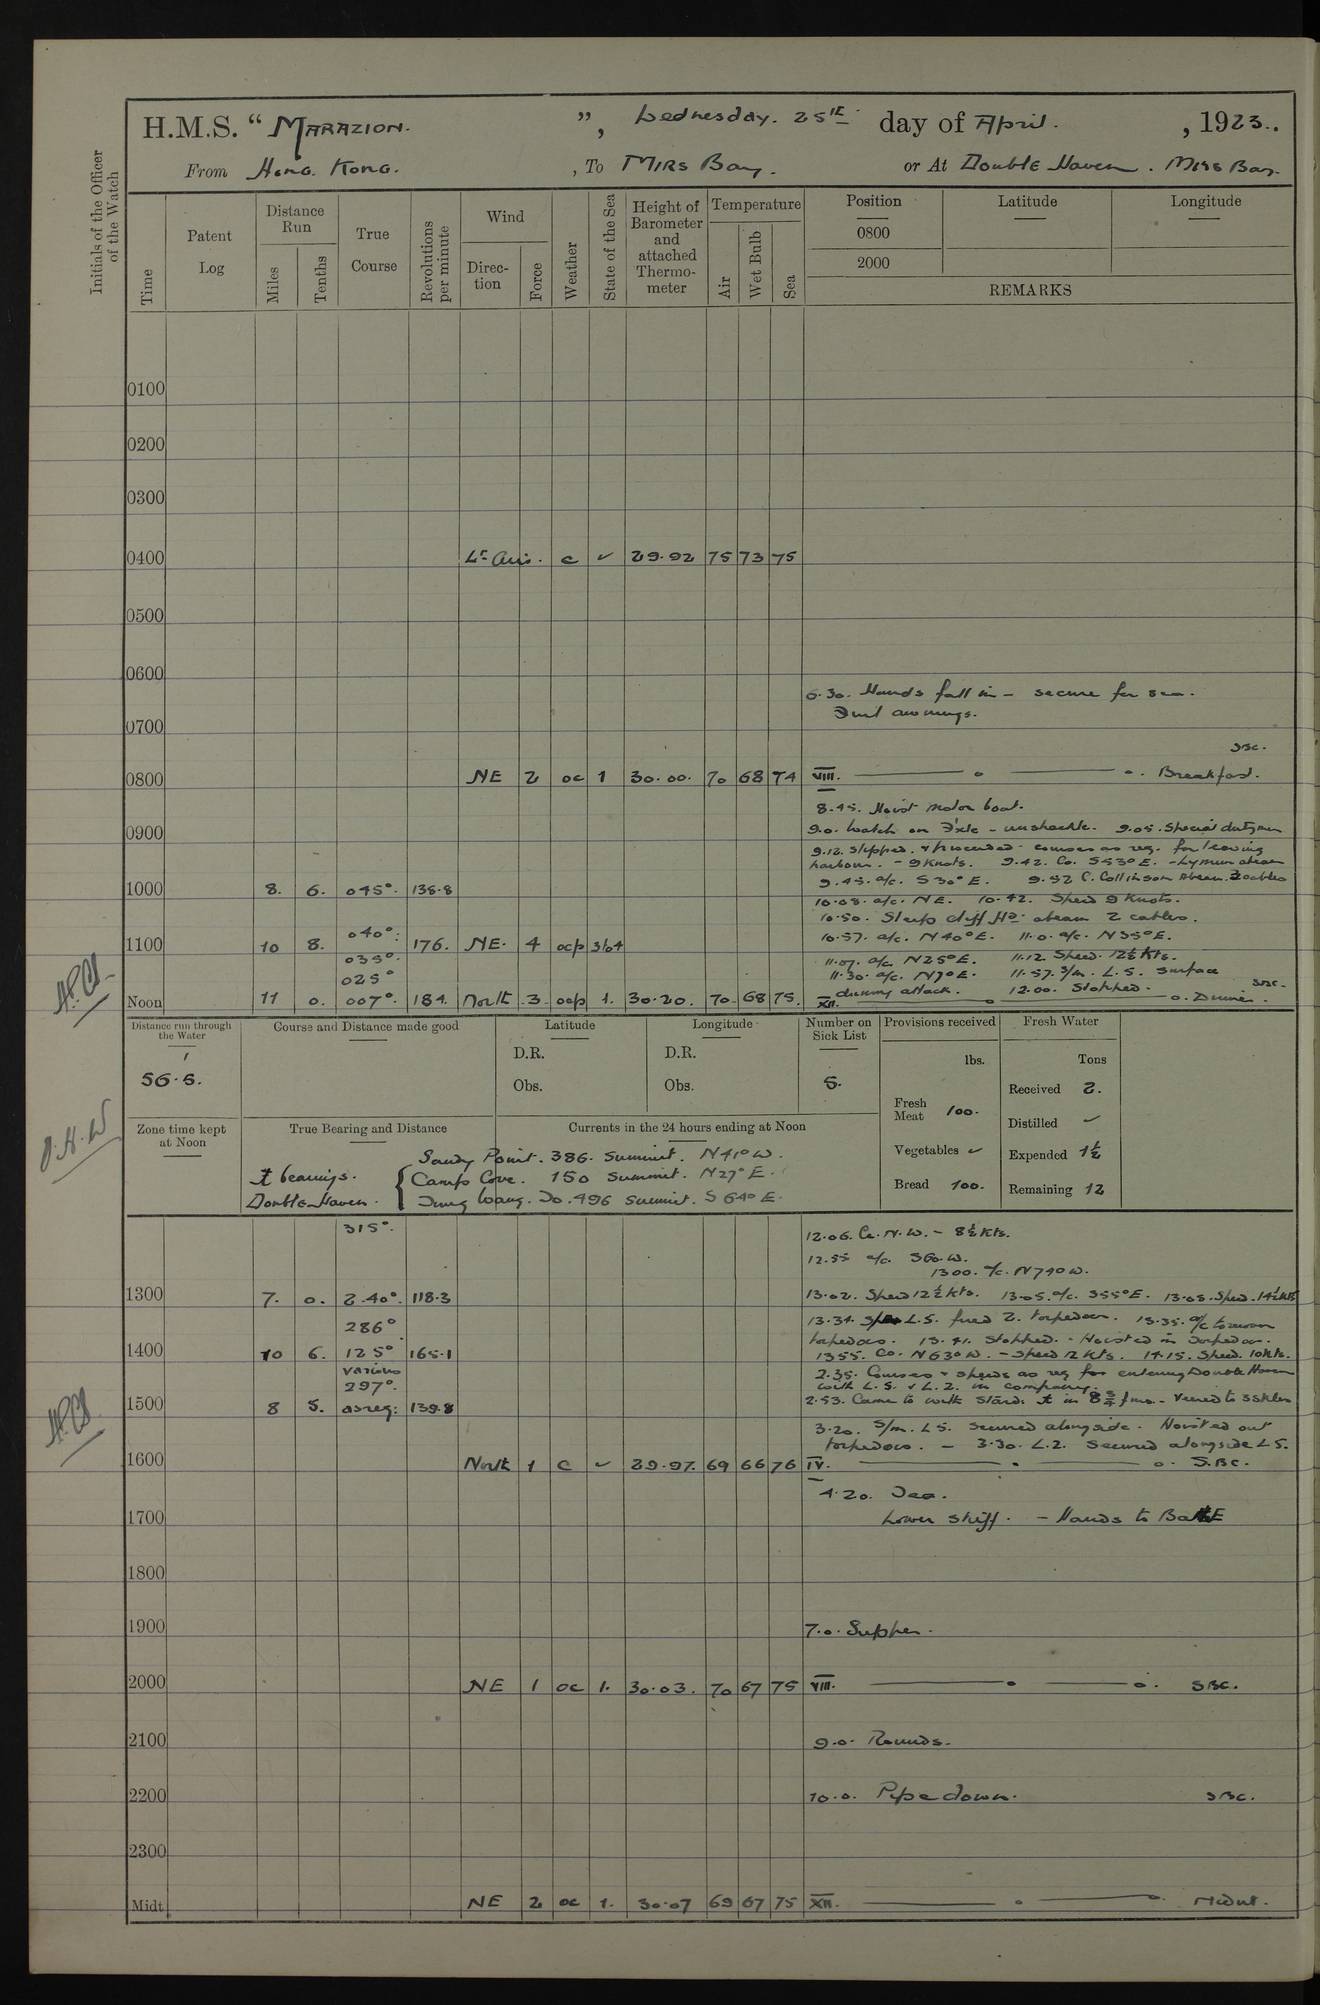 H.M.S. “ MARAZION. ”, Wednesday. 25th day of April. , 1923.
From Hong Kong. , To MIRS Bay. or At Double Haven. Mirs Bay.
Initials of the Officer of the Watch
Time
Patent Log
Distance Run
Miles
Tenths
True Course
Revolutions per minute
Wind
Direc-tion
Force
Weather
State of the Sea
Height of Barometer and attached Thermo-meter
Temperature
Air
Wet Bulb
Sea
Position Latitude Longitude
0800
2000
REMARKS
0100
0200
0300
0400 Lt Airs. c ✓ 29.92 75 73 75
0500
0600
6.30. Hands fall in - secure for sea.
Furl awnings.
0700
SBC.
0800 NE 2 oc 1 30.00. 70 68 74 VIII. Breakfast.
8.45. Hoist motor boat.
0900 9.0. Watch on Fxle - unshackle. 9.05. Special dutymen
9.12. Slipped. & proceeded courses as req. for leaving
harbour. - 9 Knots. 9.42. Co. S53°E. - Lymun abeam
1000 8. 6. 045°. 138.8 9.45. a/c. S30°E. 9.52 C. Collinson abeam. 2 cables
10.08. a/c. NE. 10.42. Speed 9 Knots.
10.50. Steep cliff Hd. abeam 2 cables.
1100 10 8. 040°. 176. NE. 4 ocp 3/04 10.57. a/c. N40°E. 11.0. a/c. N35°E.
035°. 11.07. a/c. N25°E. 11.12 Speed. 12½ Kts.
025° 11.30. a/c. N7°E. 11.57. S/m. L.S. surface
Noon 11 0. 007°. 184. North 3. ocp 1. 30.20. 70. 68 75. during attack. 12.00. Stopped. SBC.
XII. Dinner.
Distance run through the Water
56.5.
Course and Distance made good
Latitude
D.R.
Obs.
Longitude
D.R.
Obs.
Number on Sick List
5.
Provisions received
lbs.
Fresh Meat 100.
Vegetables ✓
Bread 100.
Fresh Water
Tons
Received 2.
Distilled ✓
Expended 1½
Remaining 12
Zone time kept at Noon
True Bearing and Distance
Currents in the 24 hours ending at Noon
⚓ bearings. Double Haven.
Sandy Point. 386. Summit. N41°W.
Camp Cove. 150 Summit. N27°E.
Tung Wang. Do. 496 summit. S64°E.
315°. 12.06. Co. N.W. - 8½ Kts.
12.55 a/c. S60.W.
1300. a/c. N74°W.
1300 7. 0. 240°. 118.3 13.02. Speed 12½ Kts. 13.05. a/c. S55°E. 13.08. Speed. 14½ Kts
286° 13.34. L.S. fired 2. torpedoes. 13.35. a/c to recover
torpedoes. 13.41. Stopped. - Hoisted in torpedoes.
1400 10 6. 125° 165.1 1355. Co. N63°W. - Speed 12 Kts. 14.15. Speed. 10 Kts.
various 2.35. Courses & speeds as req for entering Double Haven
297°. with L.S. & L.2. in company.
1500 8 5. as req: 139.8 2.53. Came to with Stard. ⚓ in 8¾ fms. - Veered to 5 Shkles
3.20. S/m. L5. secured alongside. Hoisted out
torpedoes. - 3.30. L.2. secured alongside L5.
1600 North 1 c ✓ 29.97. 69 66 76 IV. S.BC.
4.20. Tea.
1700 Lower skiff. - Hands to Bathe
1800
1900 7.0. Supper.
2000 NE 1 oc 1. 30.03. 70 67 75 VIII. SBC.
2100 9.0. Rounds.
2200 10.0. Pipe down. SBC.
2300
Midt. NE 2 oc 1. 30.07 69 67 75 XII. Midnt.